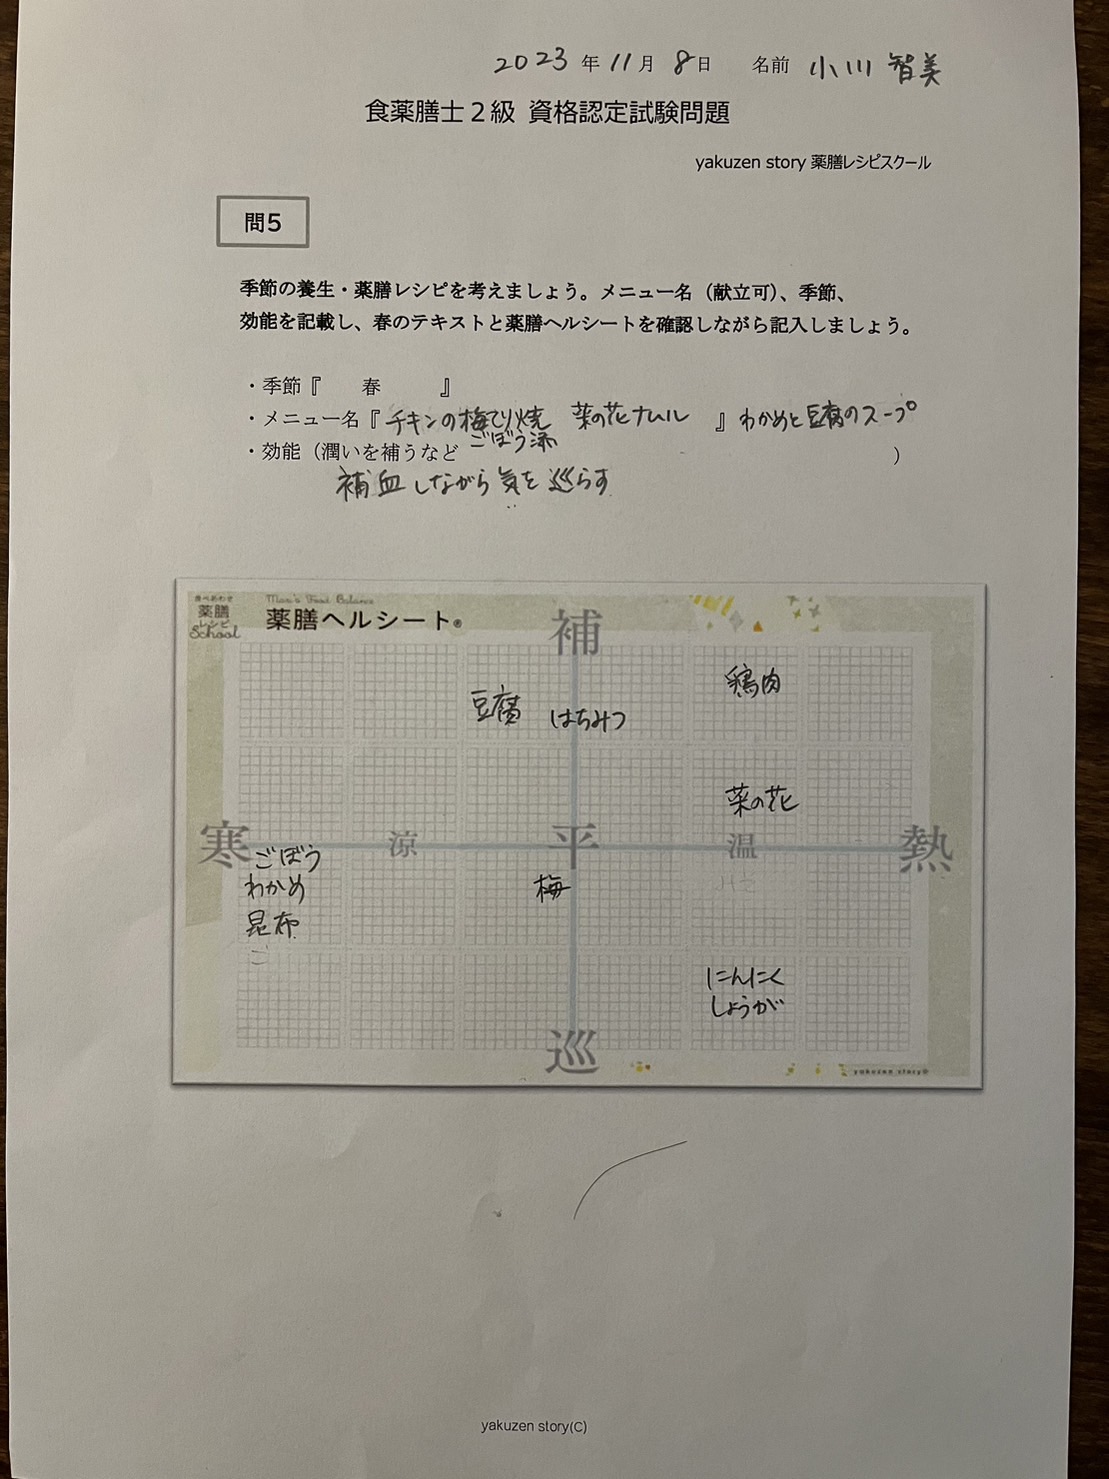 2023年11月8日 名前 小川 智美
食薬膳士２級 資格認定試験問題
yakuzen story 薬膳レシピスクール
問5
季節の養生・薬膳レシピを考えましょう。メニュー名（献立可）、季節、
効能を記載し、春のテキストと薬膳ヘルシートを確認しながら記入しましょう。
・季節『 春 』
・メニュー名『チキンの梅てり焼 菜の花ナムル 』わかめと豆腐のスープ
ごぼう添
・効能（潤いを補うなど ）
補血しながら気を巡らす
食べあわせ
薬膳
レシピ
School
Mao's Food Balance
薬膳ヘルシート®
補
鶏肉
豆腐 はちみつ
菜の花
寒 涼 平 温 熱
ごぼう
わかめ
梅
昆布
ご
にんにく
しょうが
巡
yakuzen story®
yakuzen story(C)